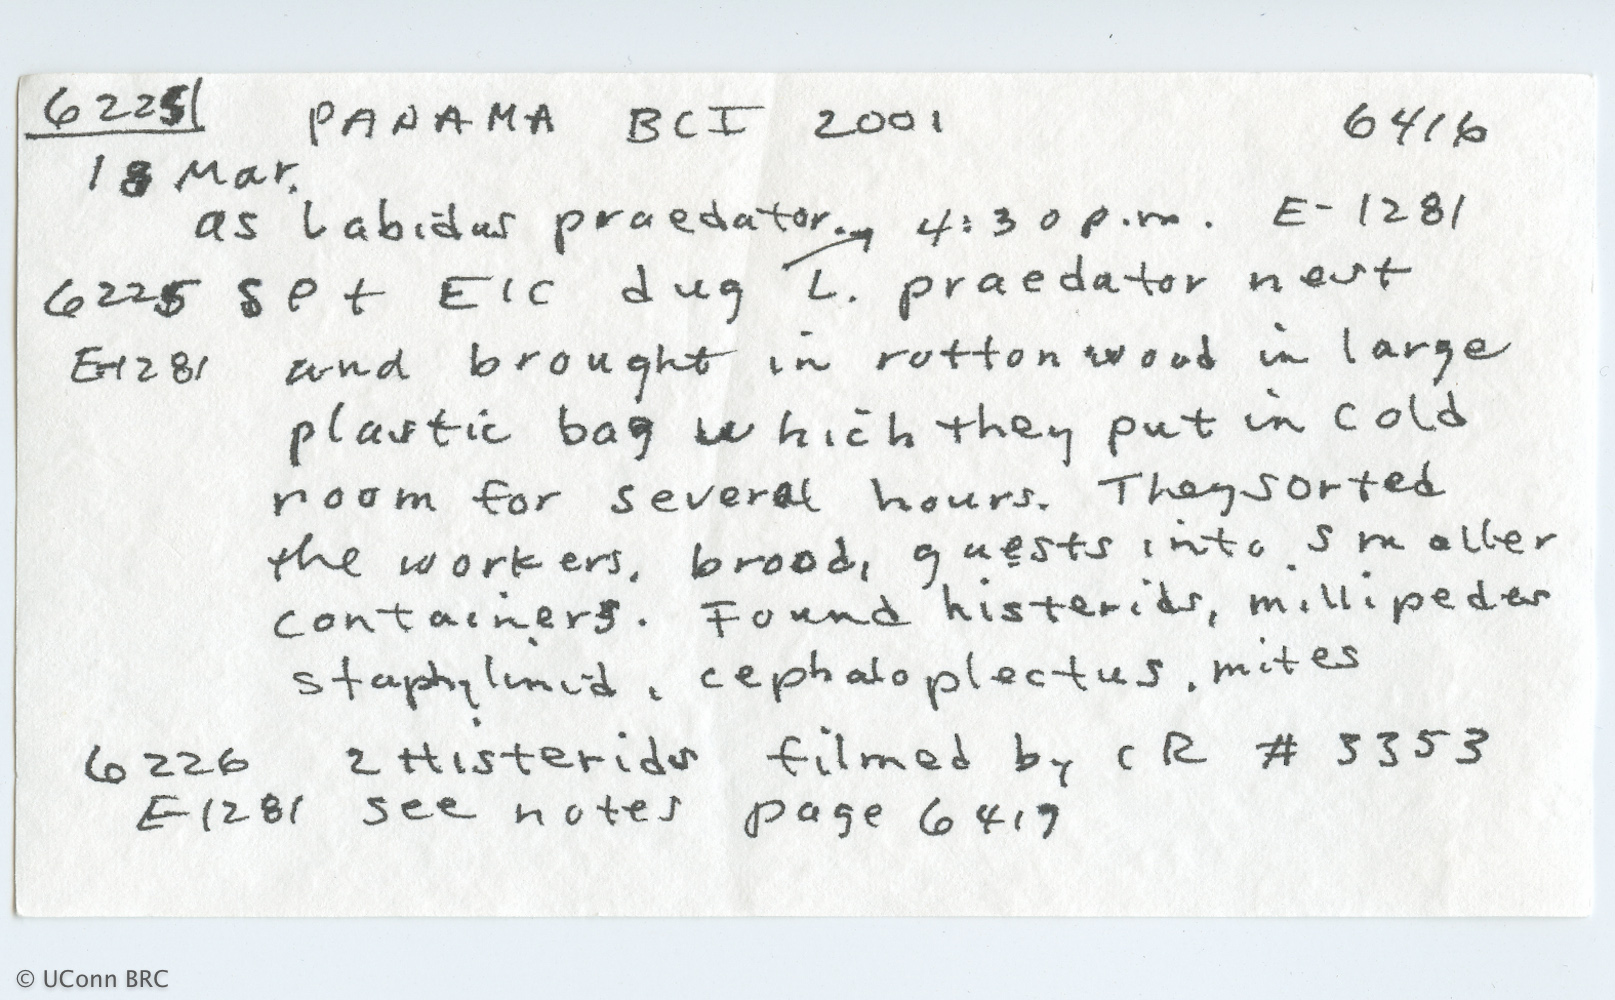 6225 PANAMA BCI 2001 6416
18 Mar.
as Labidus praedator. 4:30 p.m. E-1281
6225 set EIC dug L. praedator nest
E-1281 and brought in rotton wood in large
plastic bag which they put in cold
room for several hours. They sorted
the workers, brood, guests into smaller
containers. Found histerids, millipedes
staphylinid, cephaloplectus, mites
6226 2 Histerids filmed by CR # 3353
E-1281 see notes page 6419
© UConn BRC